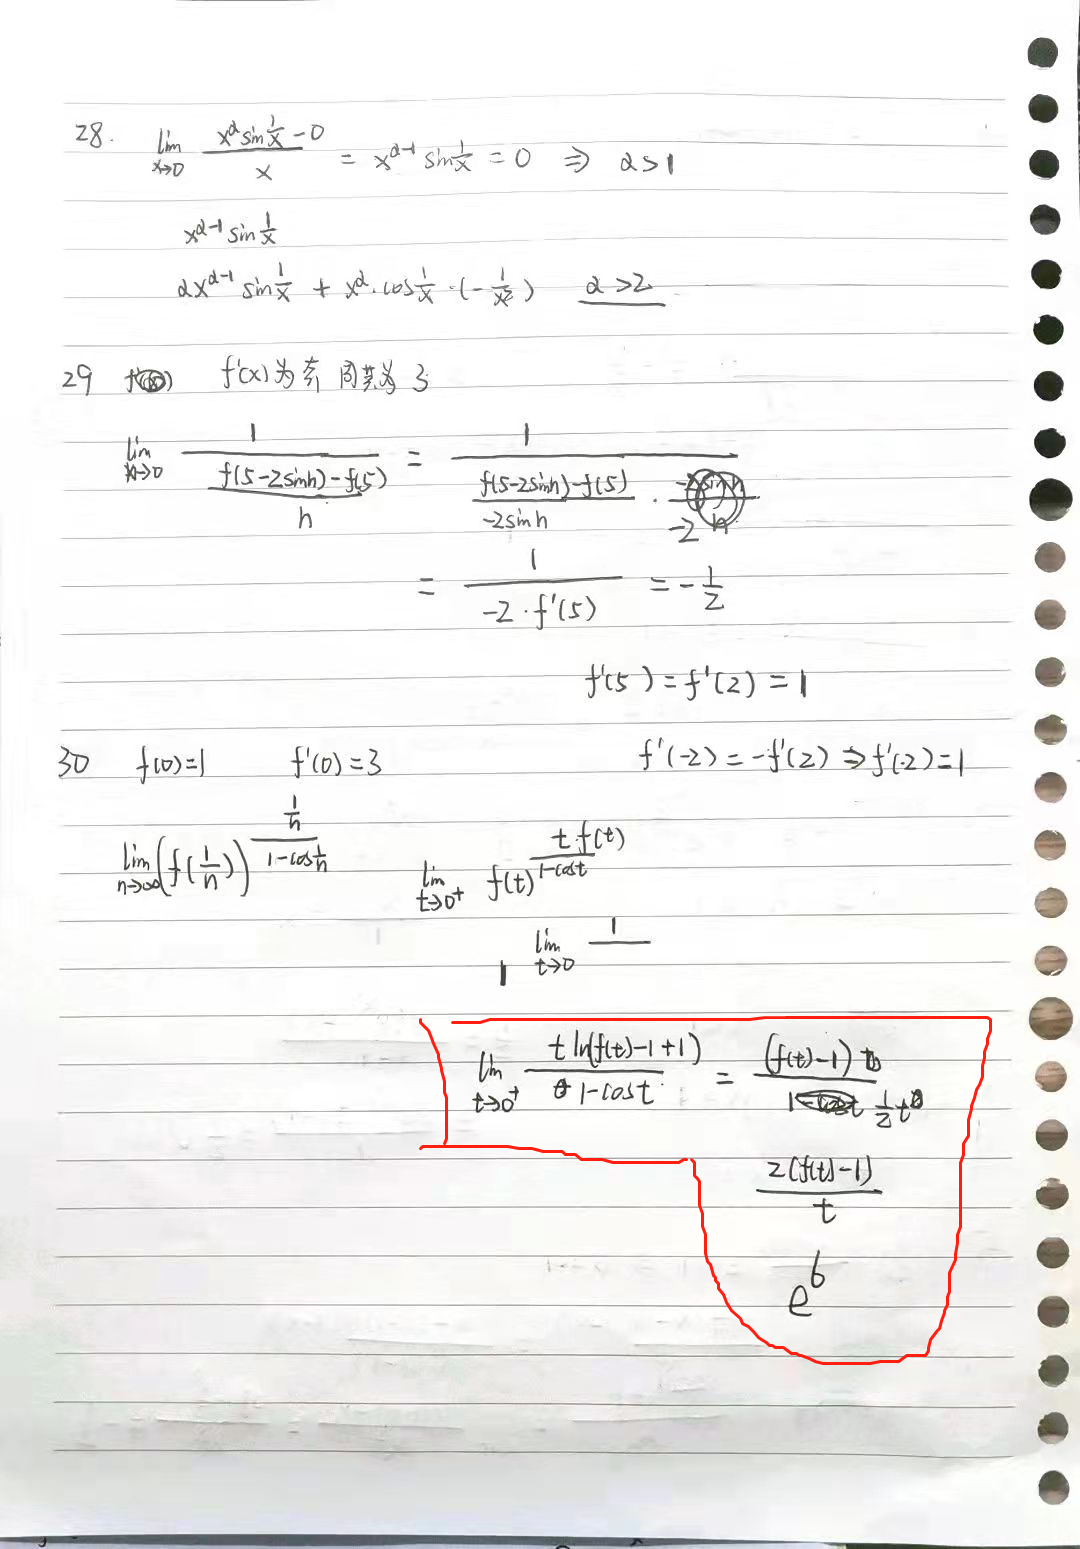 28. lim x→0 (x^α sin 1/x - 0)/x = x^(α-1) sin 1/x = 0 ⇒ α>1
x^(α-1) sin 1/x
αx^(α-1) sin 1/x + x^α·cos 1/x·(-1/x²) α>2
29 f'(x)为奇 周期为3
lim h→0 1/((f(5-2sinh)-f(5))/h) = 1/((f(5-2sinh)-f(5))/(-2sinh) · -2)
= 1/(-2·f'(5)) = -1/2
f'(5)=f'(2)=1
30 f(0)=1 f'(0)=3 f'(-2)=-f'(2)⇒f'(-2)=1
lim n→∞ (f(1/n))^((1/n)/(1-cos 1/n)) lim t→0⁺ f(t)^(t·f(t)/(1-cost))
1 lim t→0 1/
lim t→0⁺ (t ln(f(t)-1+1))/(1-cost) = ((f(t)-1) t)/(1/2 t²)
2(f(t)-1)/t
e^6